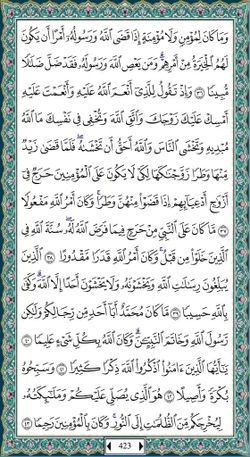 وَمَا كَانَ لِمُؤْمِنٍ وَلَا مُؤْمِنَةٍ إِذَا قَضَى ٱللَّهُ وَرَسُولُهُۥٓ أَمْرًا أَن يَكُونَ
لَهُمُ ٱلْخِيَرَةُ مِنْ أَمْرِهِمْ ۗ وَمَن يَعْصِ ٱللَّهَ وَرَسُولَهُۥ فَقَدْ ضَلَّ ضَلَـٰلًا
مُّبِينًا ٣٦ وَإِذْ تَقُولُ لِلَّذِىٓ أَنْعَمَ ٱللَّهُ عَلَيْهِ وَأَنْعَمْتَ عَلَيْهِ
أَمْسِكْ عَلَيْكَ زَوْجَكَ وَٱتَّقِ ٱللَّهَ وَتُخْفِى فِى نَفْسِكَ مَا ٱللَّهُ
مُبْدِيهِ وَتَخْشَى ٱلنَّاسَ وَٱللَّهُ أَحَقُّ أَن تَخْشَىٰهُ ۖ فَلَمَّا قَضَىٰ زَيْدٌ
مِّنْهَا وَطَرًا زَوَّجْنَـٰكَهَا لِكَىْ لَا يَكُونَ عَلَى ٱلْمُؤْمِنِينَ حَرَجٌ فِىٓ
أَزْوَٰجِ أَدْعِيَآئِهِمْ إِذَا قَضَوْا۟ مِنْهُنَّ وَطَرًا ۚ وَكَانَ أَمْرُ ٱللَّهِ مَفْعُولًا
٣٧ مَّا كَانَ عَلَى ٱلنَّبِىِّ مِنْ حَرَجٍ فِيمَا فَرَضَ ٱللَّهُ لَهُۥ ۖ سُنَّةَ ٱللَّهِ فِى
ٱلَّذِينَ خَلَوْا۟ مِن قَبْلُ ۚ وَكَانَ أَمْرُ ٱللَّهِ قَدَرًا مَّقْدُورًا ٣٨ ٱلَّذِينَ
يُبَلِّغُونَ رِسَـٰلَـٰتِ ٱللَّهِ وَيَخْشَوْنَهُۥ وَلَا يَخْشَوْنَ أَحَدًا إِلَّا ٱللَّهَ ۗ وَكَفَىٰ
بِٱللَّهِ حَسِيبًا ٣٩ مَّا كَانَ مُحَمَّدٌ أَبَآ أَحَدٍ مِّن رِّجَالِكُمْ وَلَـٰكِن
رَّسُولَ ٱللَّهِ وَخَاتَمَ ٱلنَّبِيِّـۧنَ ۗ وَكَانَ ٱللَّهُ بِكُلِّ شَىْءٍ عَلِيمًا ٤٠
يَـٰٓأَيُّهَا ٱلَّذِينَ ءَامَنُوا۟ ٱذْكُرُوا۟ ٱللَّهَ ذِكْرًا كَثِيرًا ٤١ وَسَبِّحُوهُ
بُكْرَةً وَأَصِيلًا ٤٢ هُوَ ٱلَّذِى يُصَلِّى عَلَيْكُمْ وَمَلَـٰٓئِكَتُهُۥ
لِيُخْرِجَكُم مِّنَ ٱلظُّلُمَـٰتِ إِلَى ٱلنُّورِ ۚ وَكَانَ بِٱلْمُؤْمِنِينَ رَحِيمًا ٤٣
423